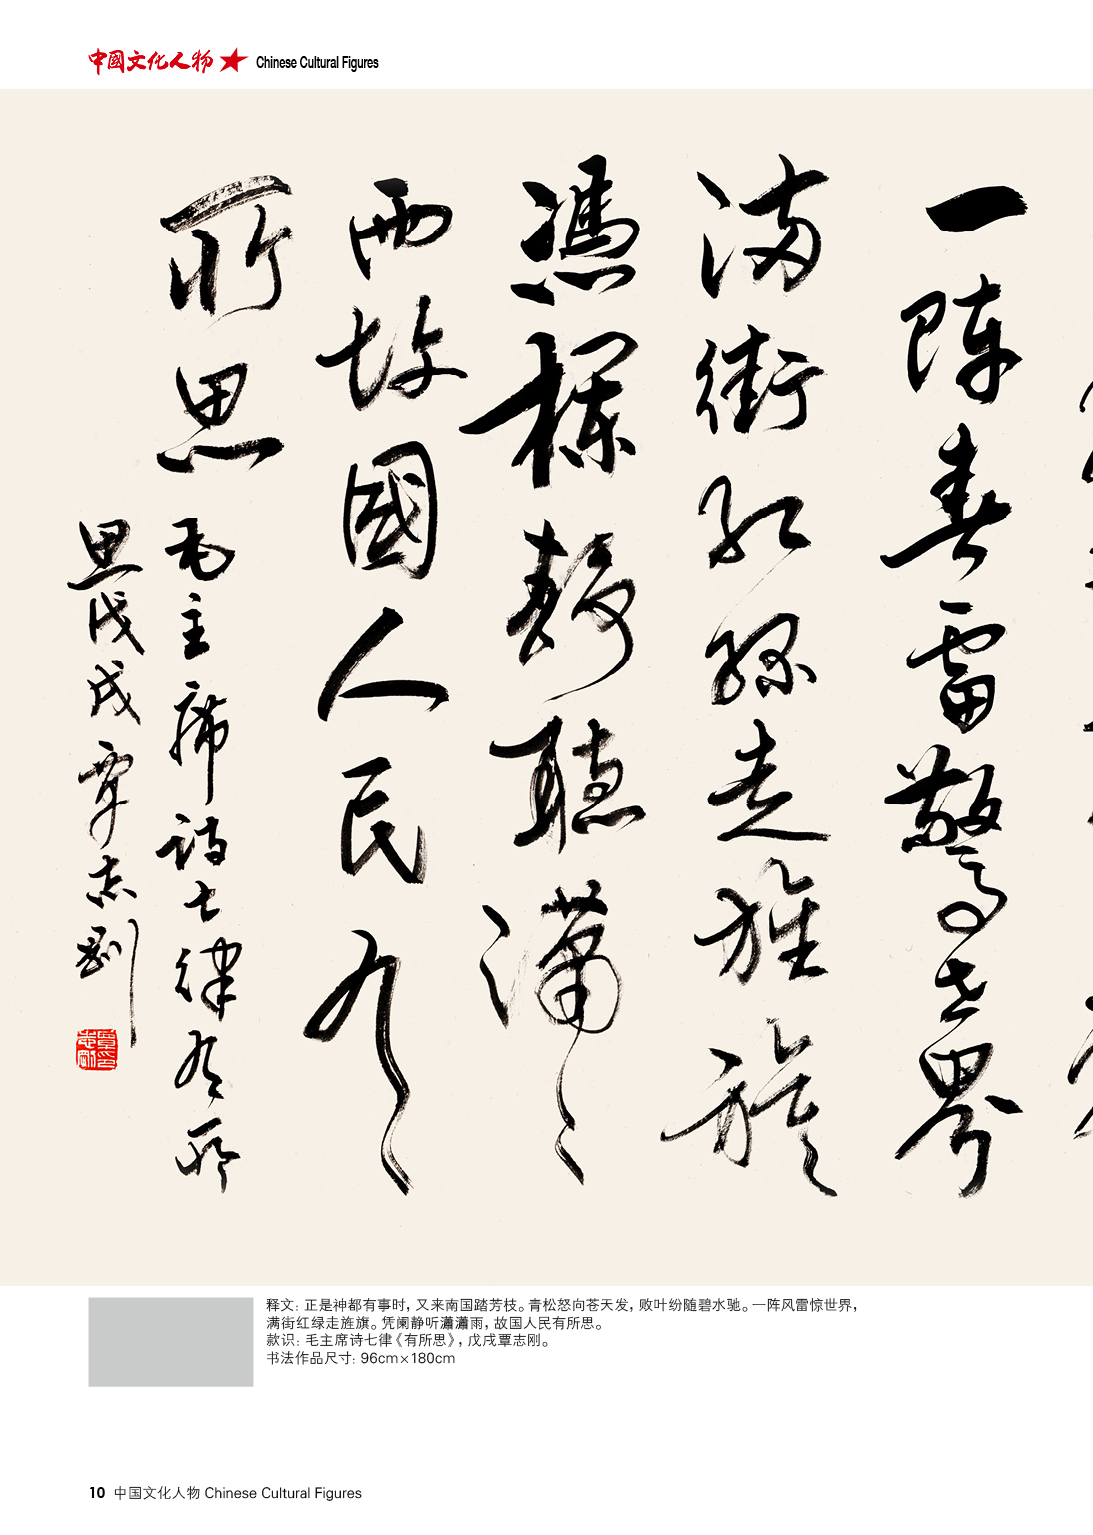 中國文化人物 ★ Chinese Cultural Figures
一阵春雷驚世界
满街红绿走旌旗
憑欄静聽瀟瀟
雨故國人民有
所思 毛主席诗七律有所
思戊戌覃志刚
覃志剛印
释文: 正是神都有事时, 又来南国踏芳枝。青松怒向苍天发, 败叶纷随碧水驰。一阵风雷惊世界,
满街红绿走旌旗。凭阑静听瀟瀟雨, 故国人民有所思。
款识: 毛主席诗七律《有所思》, 戊戌覃志刚。
书法作品尺寸: 96cm×180cm
10 中国文化人物 Chinese Cultural Figures